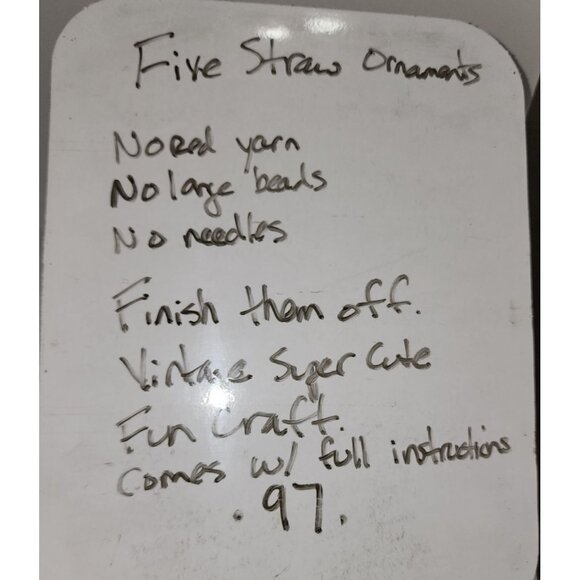 Five Straw Ornaments
No Red yarn
No large beads
No needles
Finish them off.
Vintage Super Cute
Fun Craft.
Comes w/ full instructions
.97.